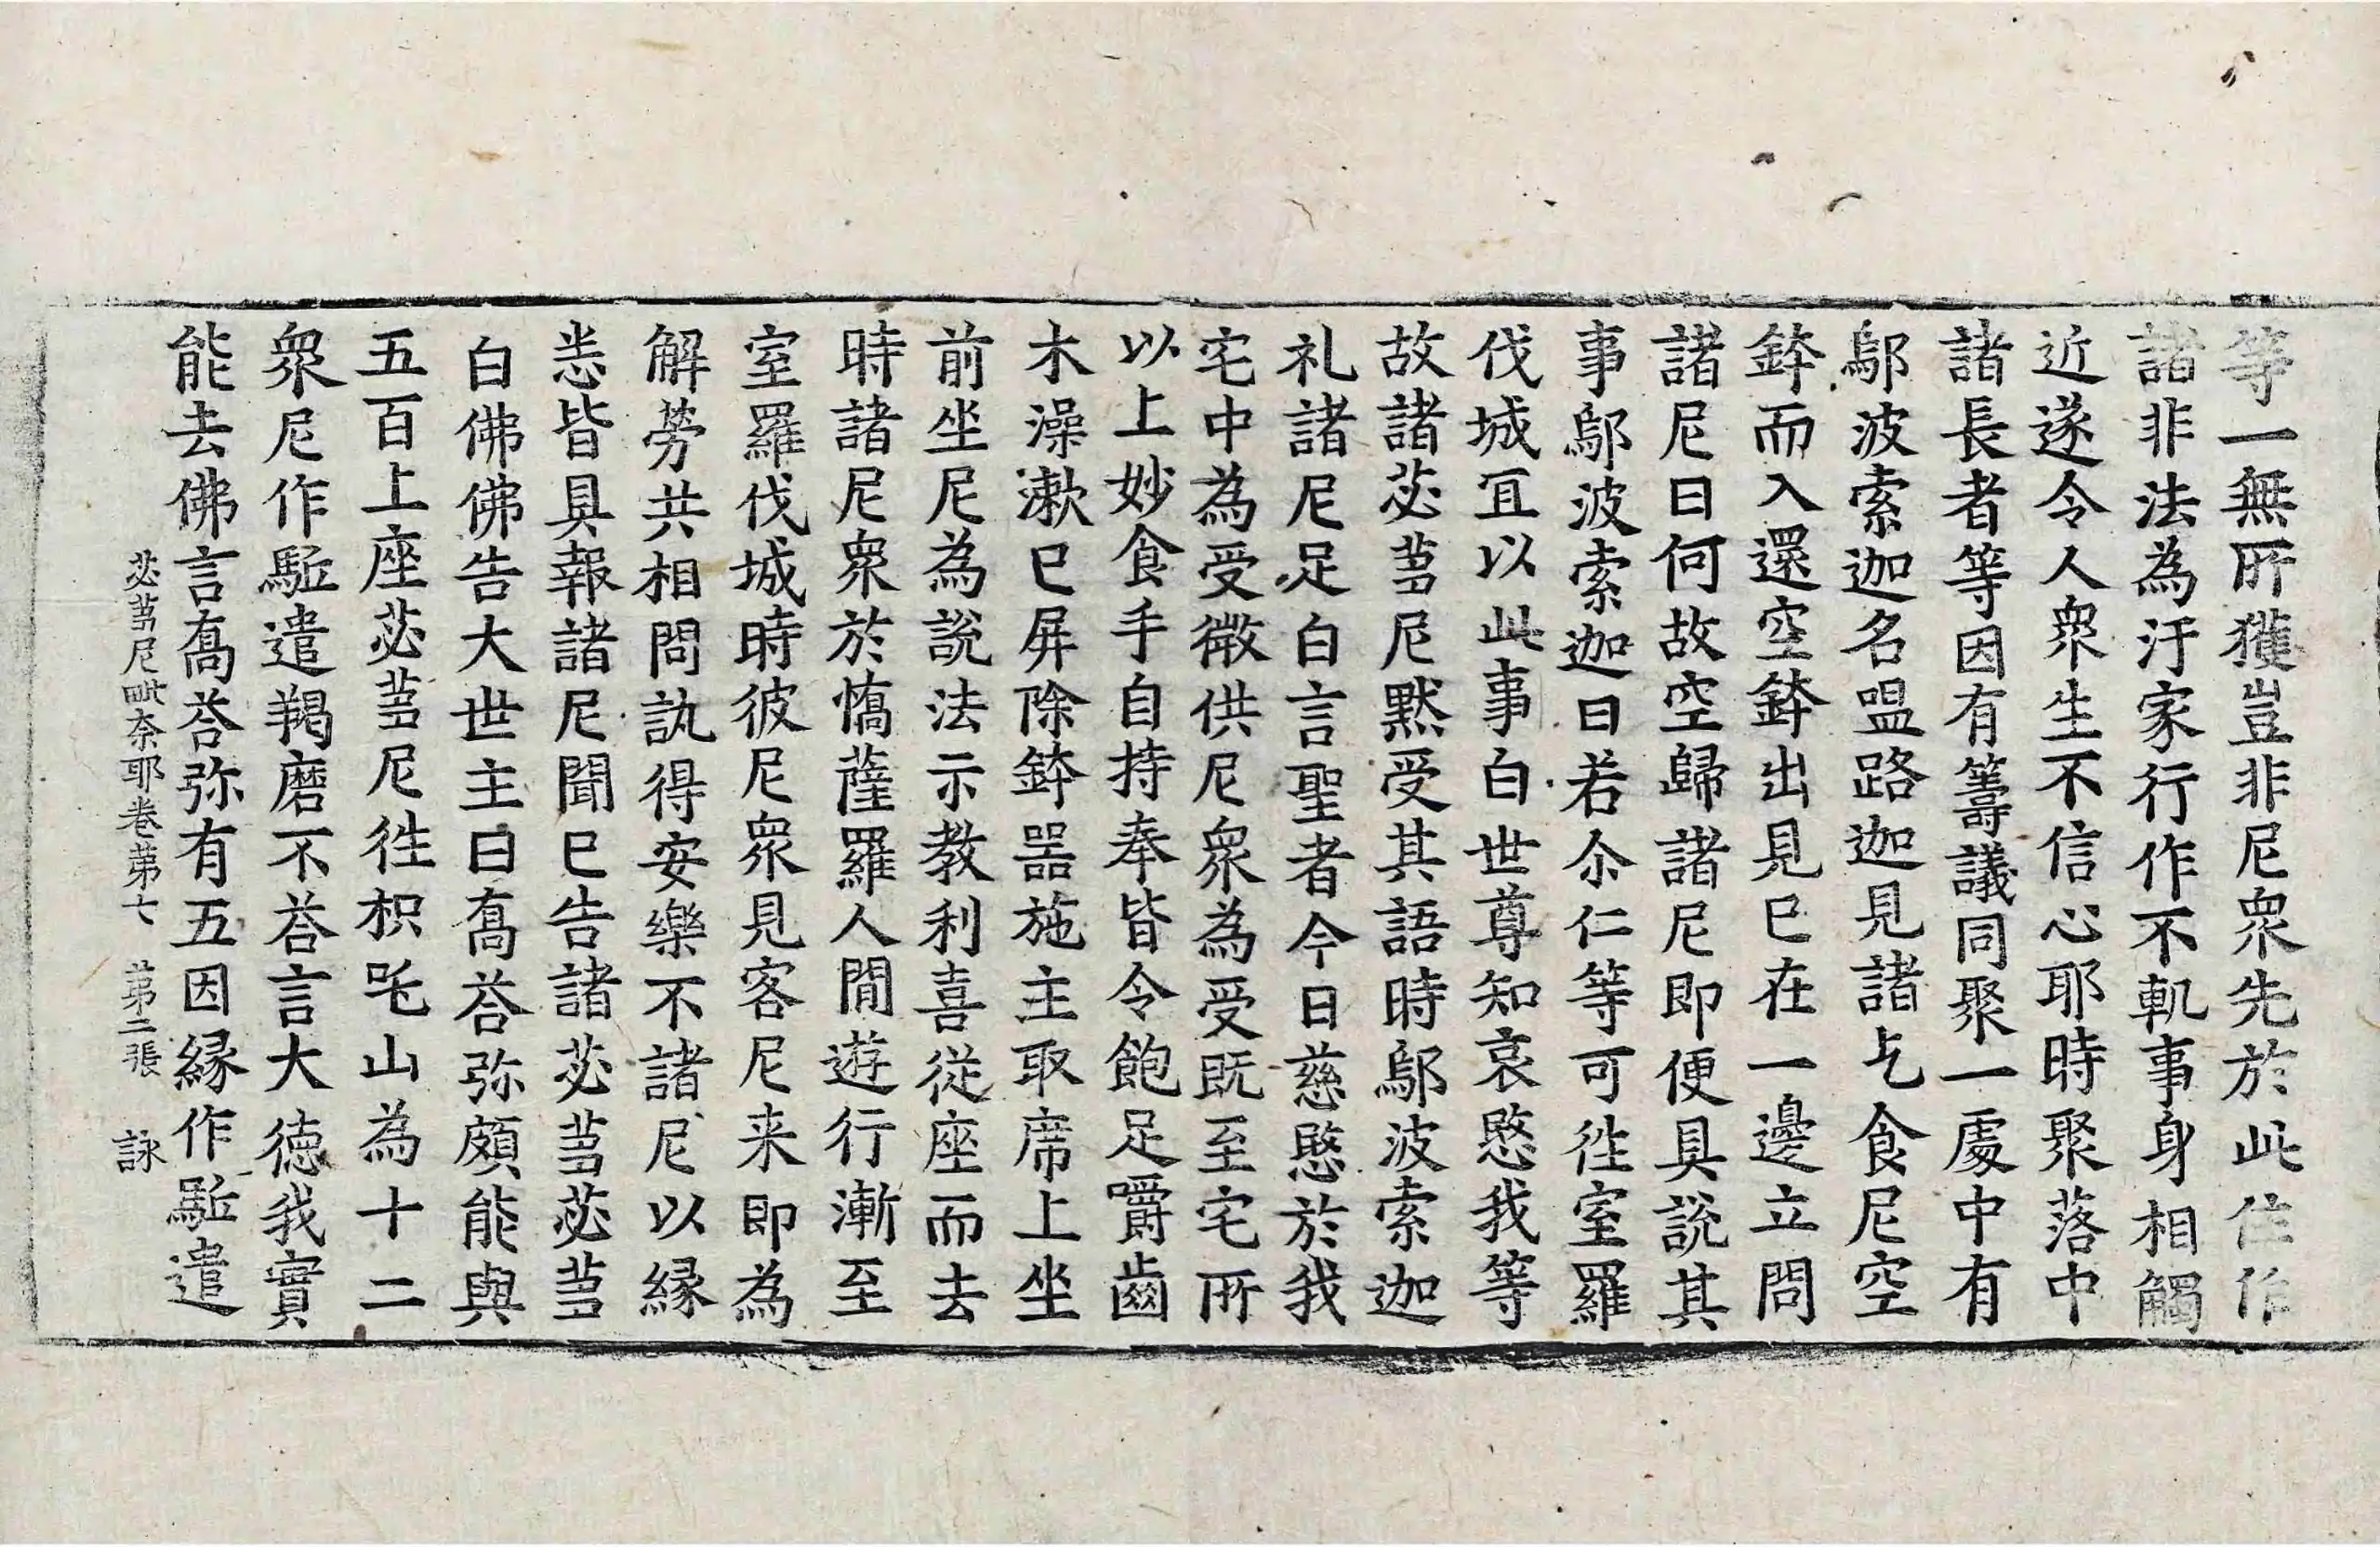 等一無所獲豈非尼眾先於此住作
諸非法為汙家行作不軌事身相觸
近遂令人眾生不信心耶時聚落中
諸長者等因有籌議同聚一處中有
鄔波索迦名嗢路迦見諸乞食尼空
鉢而入還空鉢出見已在一邊立問
諸尼曰何故空歸諸尼即便具說其
事鄔波索迦曰若尒仁等可往室羅
伐城冝以此事白世尊知哀愍我等
故諸苾芻尼默受其語時鄔波索迦
礼諸尼足白言聖者今日慈愍於我
宅中為受微供尼眾為受既至宅所
以上妙食手自持奉皆令飽足嚼齒
木澡漱已屏除鉢器施主取席上坐
前坐尼為說法示教利喜從座而去
時諸尼眾於憍薩羅人間遊行漸至
室羅伐城時彼尼眾見客尼来即為
解勞共相問訊得安樂不諸尼以緣
悉皆具報諸尼聞已告諸苾芻苾芻
白佛佛告大世主曰喬荅弥頗能與
五百上座苾芻尼往枳吒山為十二
眾尼作驅遣羯磨不荅言大德我實
能去佛言喬荅弥有五因緣作驅遣
苾芻尼毗奈耶卷第七　第二張　詠